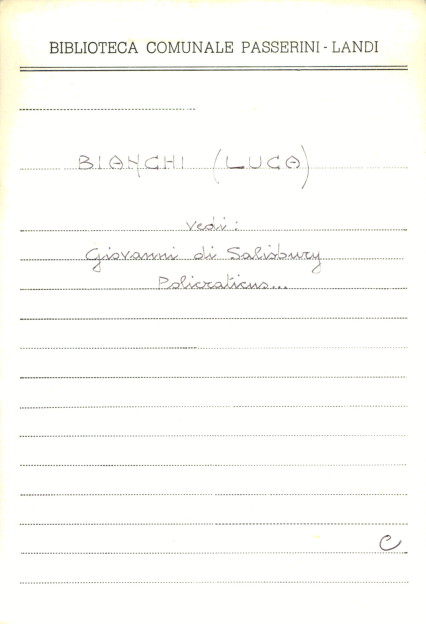 BIBLIOTECA COMUNALE PASSERINI - LANDI
BIANCHI (LUCA)
vedi:
Giovanni di Salisbury
Policraticus...
C